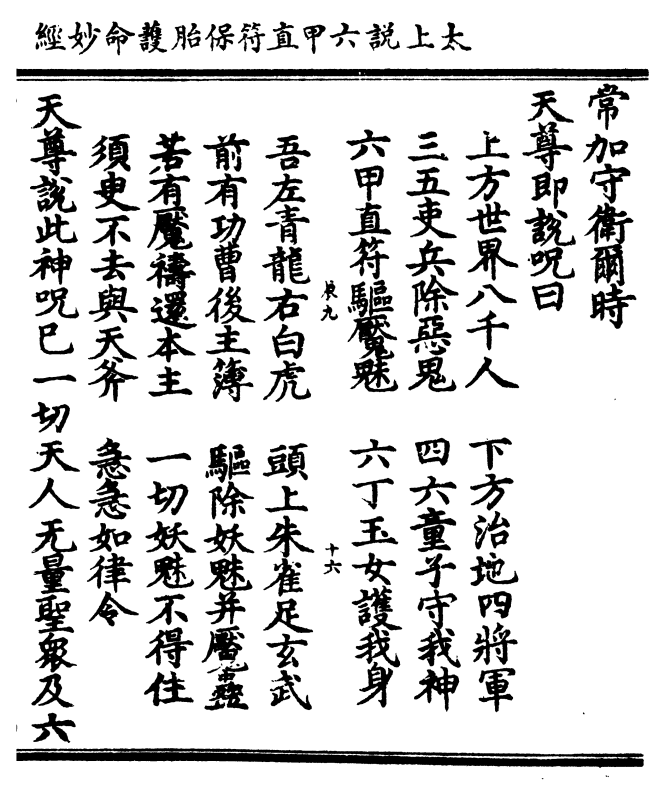 太上說六甲直符保胎護命妙經
常加守衛爾時
天尊即說呪曰
上方世界八千人 下方治地四將軍
三五吏兵除惡鬼 四六童子守我神
六甲直符驅魘魅 六丁玉女護我身
良九 十六
吾左青龍右白虎 頭上朱雀足玄武
前有功曹後主簿 驅除妖魅并魘蠱
若有魘禱還本主 一切妖魅不得住
須臾不去與天斧 急急如律令
天尊說此神呪已一切天人无量聖衆及六